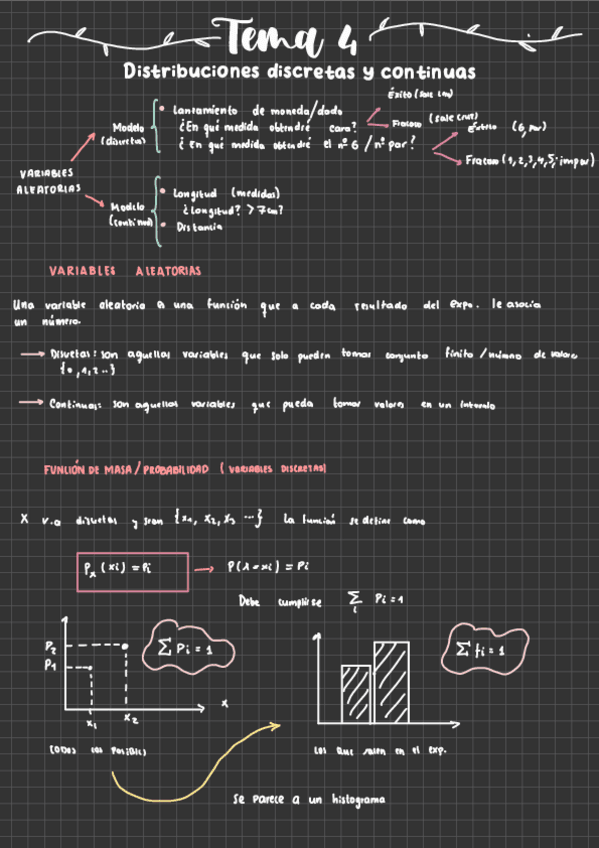 Tema 4
Distribuciones discretas y continuas
VARIABLES ALEATORIAS
Modelo (discretas)
• Lanzamiento de moneda/dado
¿En qué medida obtendré cara?
Éxito (sale
Fracaso (sale cruz)
¿En qué medida obtendré el nº 6 / nº par?
Éxito (6, par)
Fracaso (1,2,3,4,5; impar)
Modelo
• Longitud (medidas)
¿Longitud? > 7cm?
• Distancia
VARIABLES ALEATORIAS
Una variable aleatoria es una función que a cada resultado del expo. le asocia
un número.
→ Discretas: son aquellas variables que solo pueden tomar conjunto finito / número de valores
{0, 1, 2 ..}
→ Continuas: son aquellas variables que pueda tomar valores en un intervalo
FUNCIÓN DE MASA / PROBABILIDAD ( VARIABLES DISCRETAS)
X v.a discretas y sean {x1, x2, x3 ...} La función se define como
Px (xi) = Pi → P(X = xi) = Pi
Debe cumplirse Σ Pi = 1
i
P2
P1
x1
x2
x
Σ Pi = 1
Σ fi = 1
todos los posibles
los que salen en el exp.
Se parece a un histograma